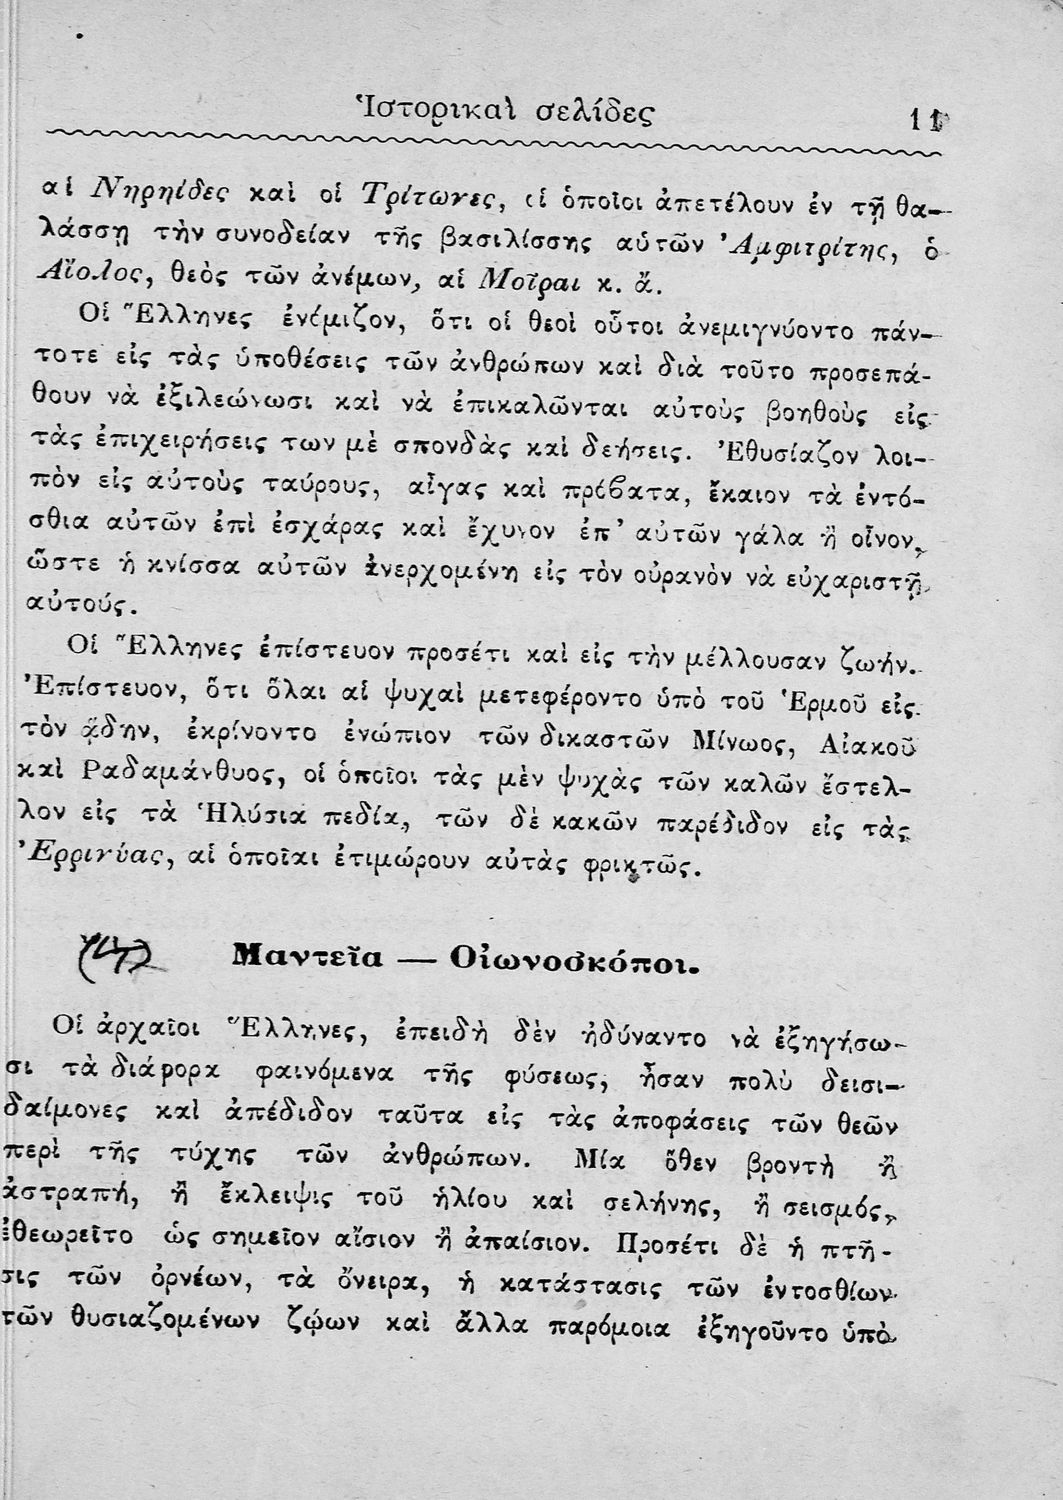 Ἱστορικαὶ σελίδες 11
αἱ Νηρηίδες καὶ οἱ Τρίτωνες, οἱ ὁποῖοι ἀπετέλουν ἐν τῇ θα-
λάσσῃ τὴν συνοδείαν τῆς βασιλίσσης αὑτῶν Ἀμφιτρίτης, ὁ
Αἴολος, θεὸς τῶν ἀνέμων, αἱ Μοῖραι κ. ἄ.
Οἱ Ἕλληνες ἐνόμιζον, ὅτι οἱ θεοὶ οὗτοι ἀνεμιγνύοντο πάν-
τοτε εἰς τὰς ὑποθέσεις τῶν ἀνθρώπων καὶ διὰ τοῦτο προσεπά-
θουν νὰ ἐξιλεώνωσι καὶ νὰ ἐπικαλῶνται αὐτοὺς βοηθοὺς εἰς
τὰς ἐπιχειρήσεις των μὲ σπονδὰς καὶ δεήσεις. Ἐθυσίαζον λοι-
πὸν εἰς αὐτοὺς ταύρους, αἶγας καὶ πρόβατα, ἔκαιον τὰ ἐντό-
σθια αὐτῶν ἐπὶ ἐσχάρας καὶ ἔχυνον ἐπ' αὐτῶν γάλα ἢ οἶνον,
ὥστε ἡ κνίσσα αὐτῶν ἀνερχομένη εἰς τὸν οὐρανὸν νὰ εὐχαριστῇ
αὐτούς.
Οἱ Ἕλληνες ἐπίστευον προσέτι καὶ εἰς τὴν μέλλουσαν ζωήν.
Ἐπίστευον, ὅτι ὅλαι αἱ ψυχαὶ μετεφέροντο ὑπὸ τοῦ Ἑρμοῦ εἰς
τὸν ᾅδην, ἐκρίνοντο ἐνώπιον τῶν δικαστῶν Μίνωος, Αἰακοῦ
καὶ Ραδαμάνθυος, οἱ ὁποῖοι τὰς μὲν ψυχὰς τῶν καλῶν ἔστελ-
λον εἰς τὰ Ἠλύσια πεδία, τῶν δὲ κακῶν παρέδιδον εἰς τὰς
Ἐρρινύας, αἱ ὁποῖαι ἐτιμώρουν αὐτὰς φρικτῶς.
Μαντεῖα — Οἰωνοσκόποι.
Οἱ ἀρχαῖοι Ἕλληνες, ἐπειδὴ δὲν ἠδύναντο νὰ ἐξηγήσω-
σι τὰ διάφορα φαινόμενα τῆς φύσεως, ἦσαν πολὺ δεισι-
δαίμονες καὶ ἀπέδιδον ταῦτα εἰς τὰς ἀποφάσεις τῶν θεῶν
περὶ τῆς τύχης τῶν ἀνθρώπων. Μία ὅθεν βροντὴ ἢ
ἀστραπή, ἢ ἔκλειψις τοῦ ἡλίου καὶ σελήνης, ἢ σεισμός,
ἐθεωρεῖτο ὡς σημεῖον αἴσιον ἢ ἀπαίσιον. Προσέτι δὲ ἡ πτῆ-
σις τῶν ὀρνέων, τὰ ὄνειρα, ἡ κατάστασις τῶν ἐντοσθίων
τῶν θυσιαζομένων ζῴων καὶ ἄλλα παρόμοια ἐξηγοῦντο ὑπὸ